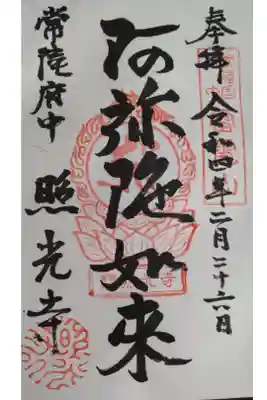 奉拝 令和四年二月二十六日
阿弥陀如来
常陸府中 照光寺